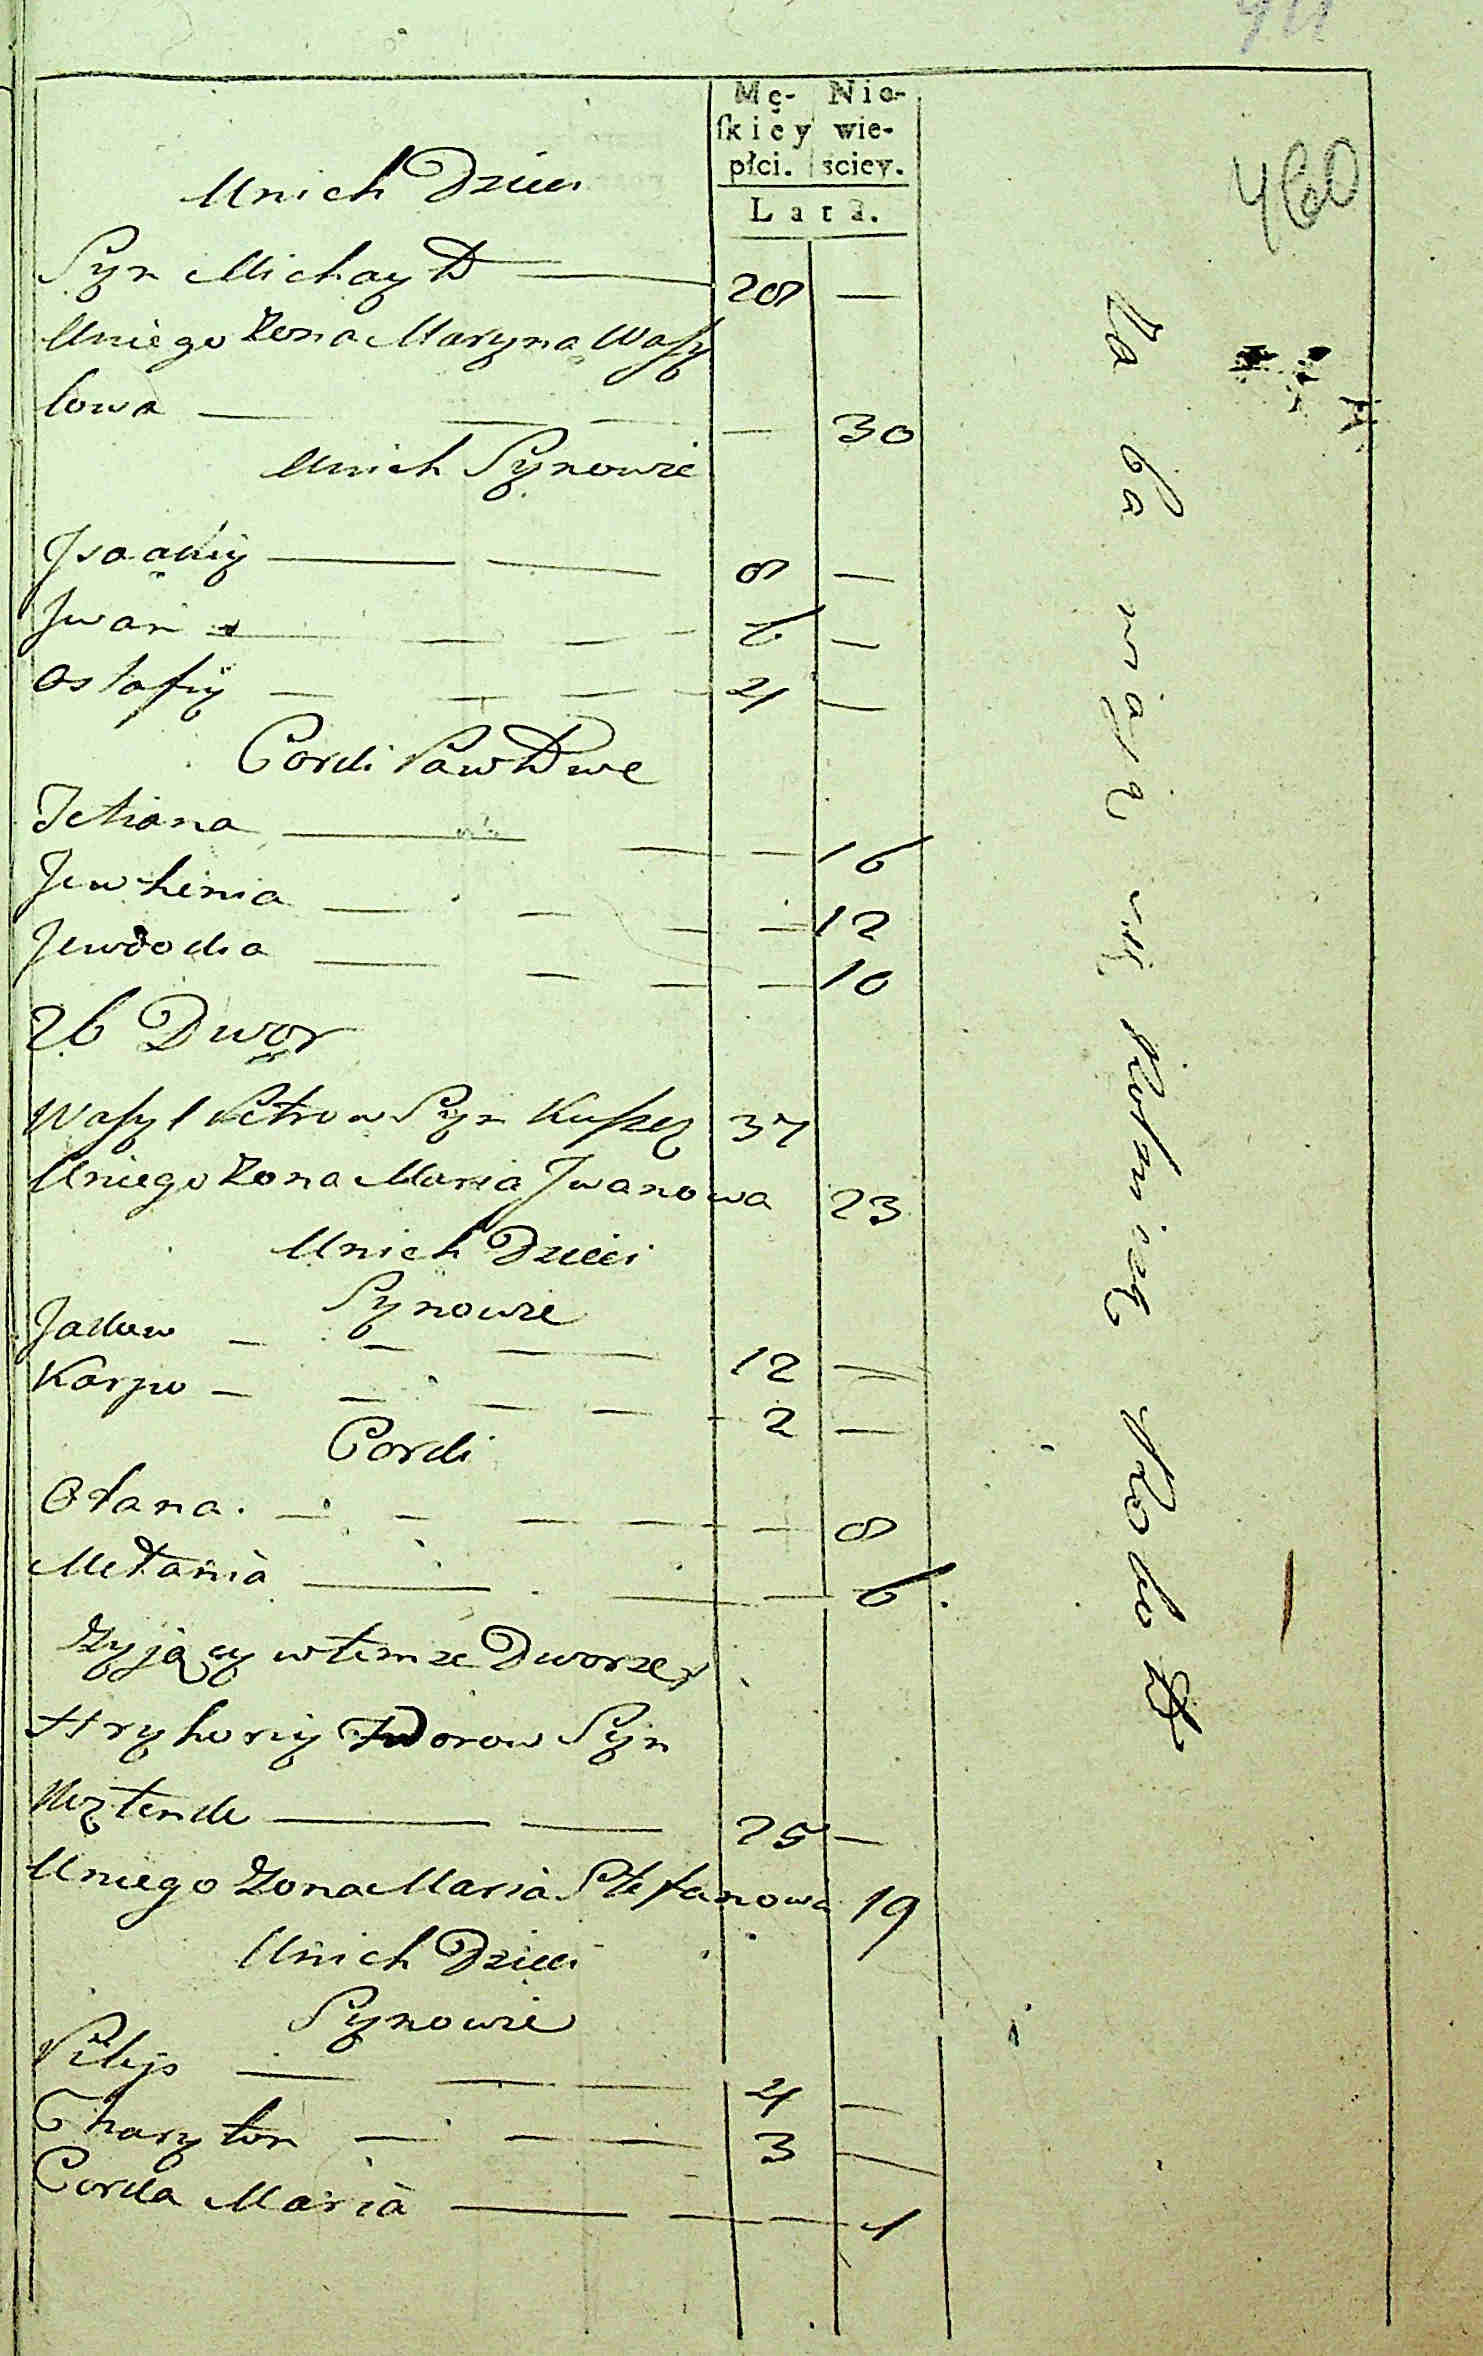 460
Mę-
ſkiey
płci.
Nie-
wie-
ściey.
Lata.
Unich Dzieci
Syn Michayło — 28 —
Uniego Zona Maryna Wasy
lowa — — — — 30
Unich Synowie
Jsaakiy — — 8 —
Jwan — — — — 6 —
Ostafiy — — — — 4 —
Cordi Pawłowe
Tetiana — — — 16
Jewhenia — — — — 12
Jewdocha — — — — 10
26 Dwor
Wasyl Petrow Syn 37
Uniego Zona Maria Jwanowa 23
Unich Dzieci
Synowie
— — — — 12 —
Karpo — — — — — 2 —
Cordi
Ołana. — — — — — 8
Mełania — — — 6.
Zyjący wtemze Dworze
Hryhoriy Fedorow Syn
— — 25 —
Uniego Zona Maria Stefanowa 19
Unich Dzieci
Synowie
Pilip — — — 4 —
Charyton — — — 3 —
Corda Maria — — — 1
Zabawiają się Rolniczą Robotą